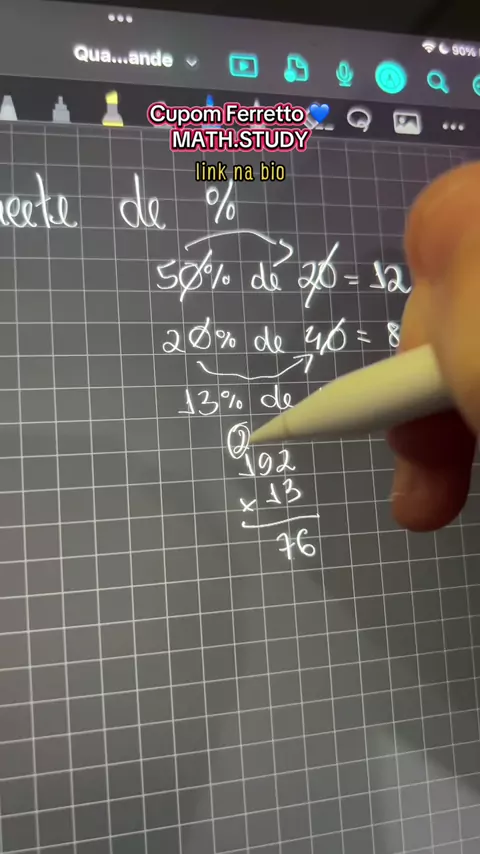 90%
Qua...ande
Cupom Ferretto 💙
MATH.STUDY
link na bio
de %
50% de 20 = 12
20% de 40 = 8
13% de
2
192
x 13
76